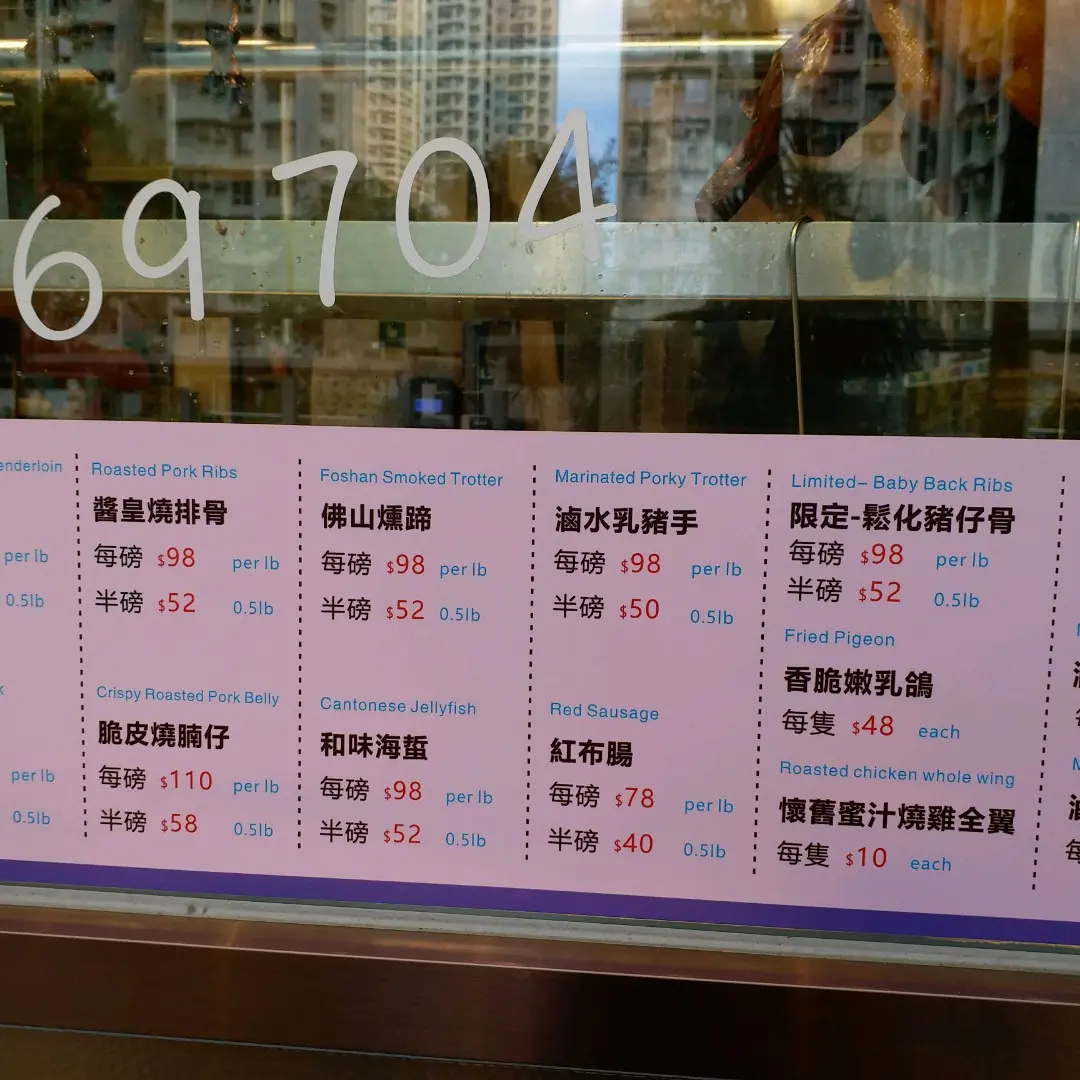 69 704
enderloin
per lb
0.5lb
per lb
0.5lb
Roasted Pork Ribs
醬皇燒排骨
每磅 $98 per lb
半磅 $52 0.5lb
Crispy Roasted Pork Belly
脆皮燒腩仔
每磅 $110 per lb
半磅 $58 0.5lb
Foshan Smoked Trotter
佛山燻蹄
每磅 $98 per lb
半磅 $52 0.5lb
Cantonese Jellyfish
和味海蜇
每磅 $98 per lb
半磅 $52 0.5lb
Marinated Porky Trotter
滷水乳豬手
每磅 $98 per lb
半磅 $50 0.5lb
Red Sausage
紅布腸
每磅 $78 per lb
半磅 $40 0.5lb
Limited– Baby Back Ribs
限定-鬆化豬仔骨
每磅 $98 per lb
半磅 $52 0.5lb
Fried Pigeon
香脆嫩乳鴿
每隻 $48 each
Roasted chicken whole wing
懷舊蜜汁燒雞全翼
每隻 $10 each